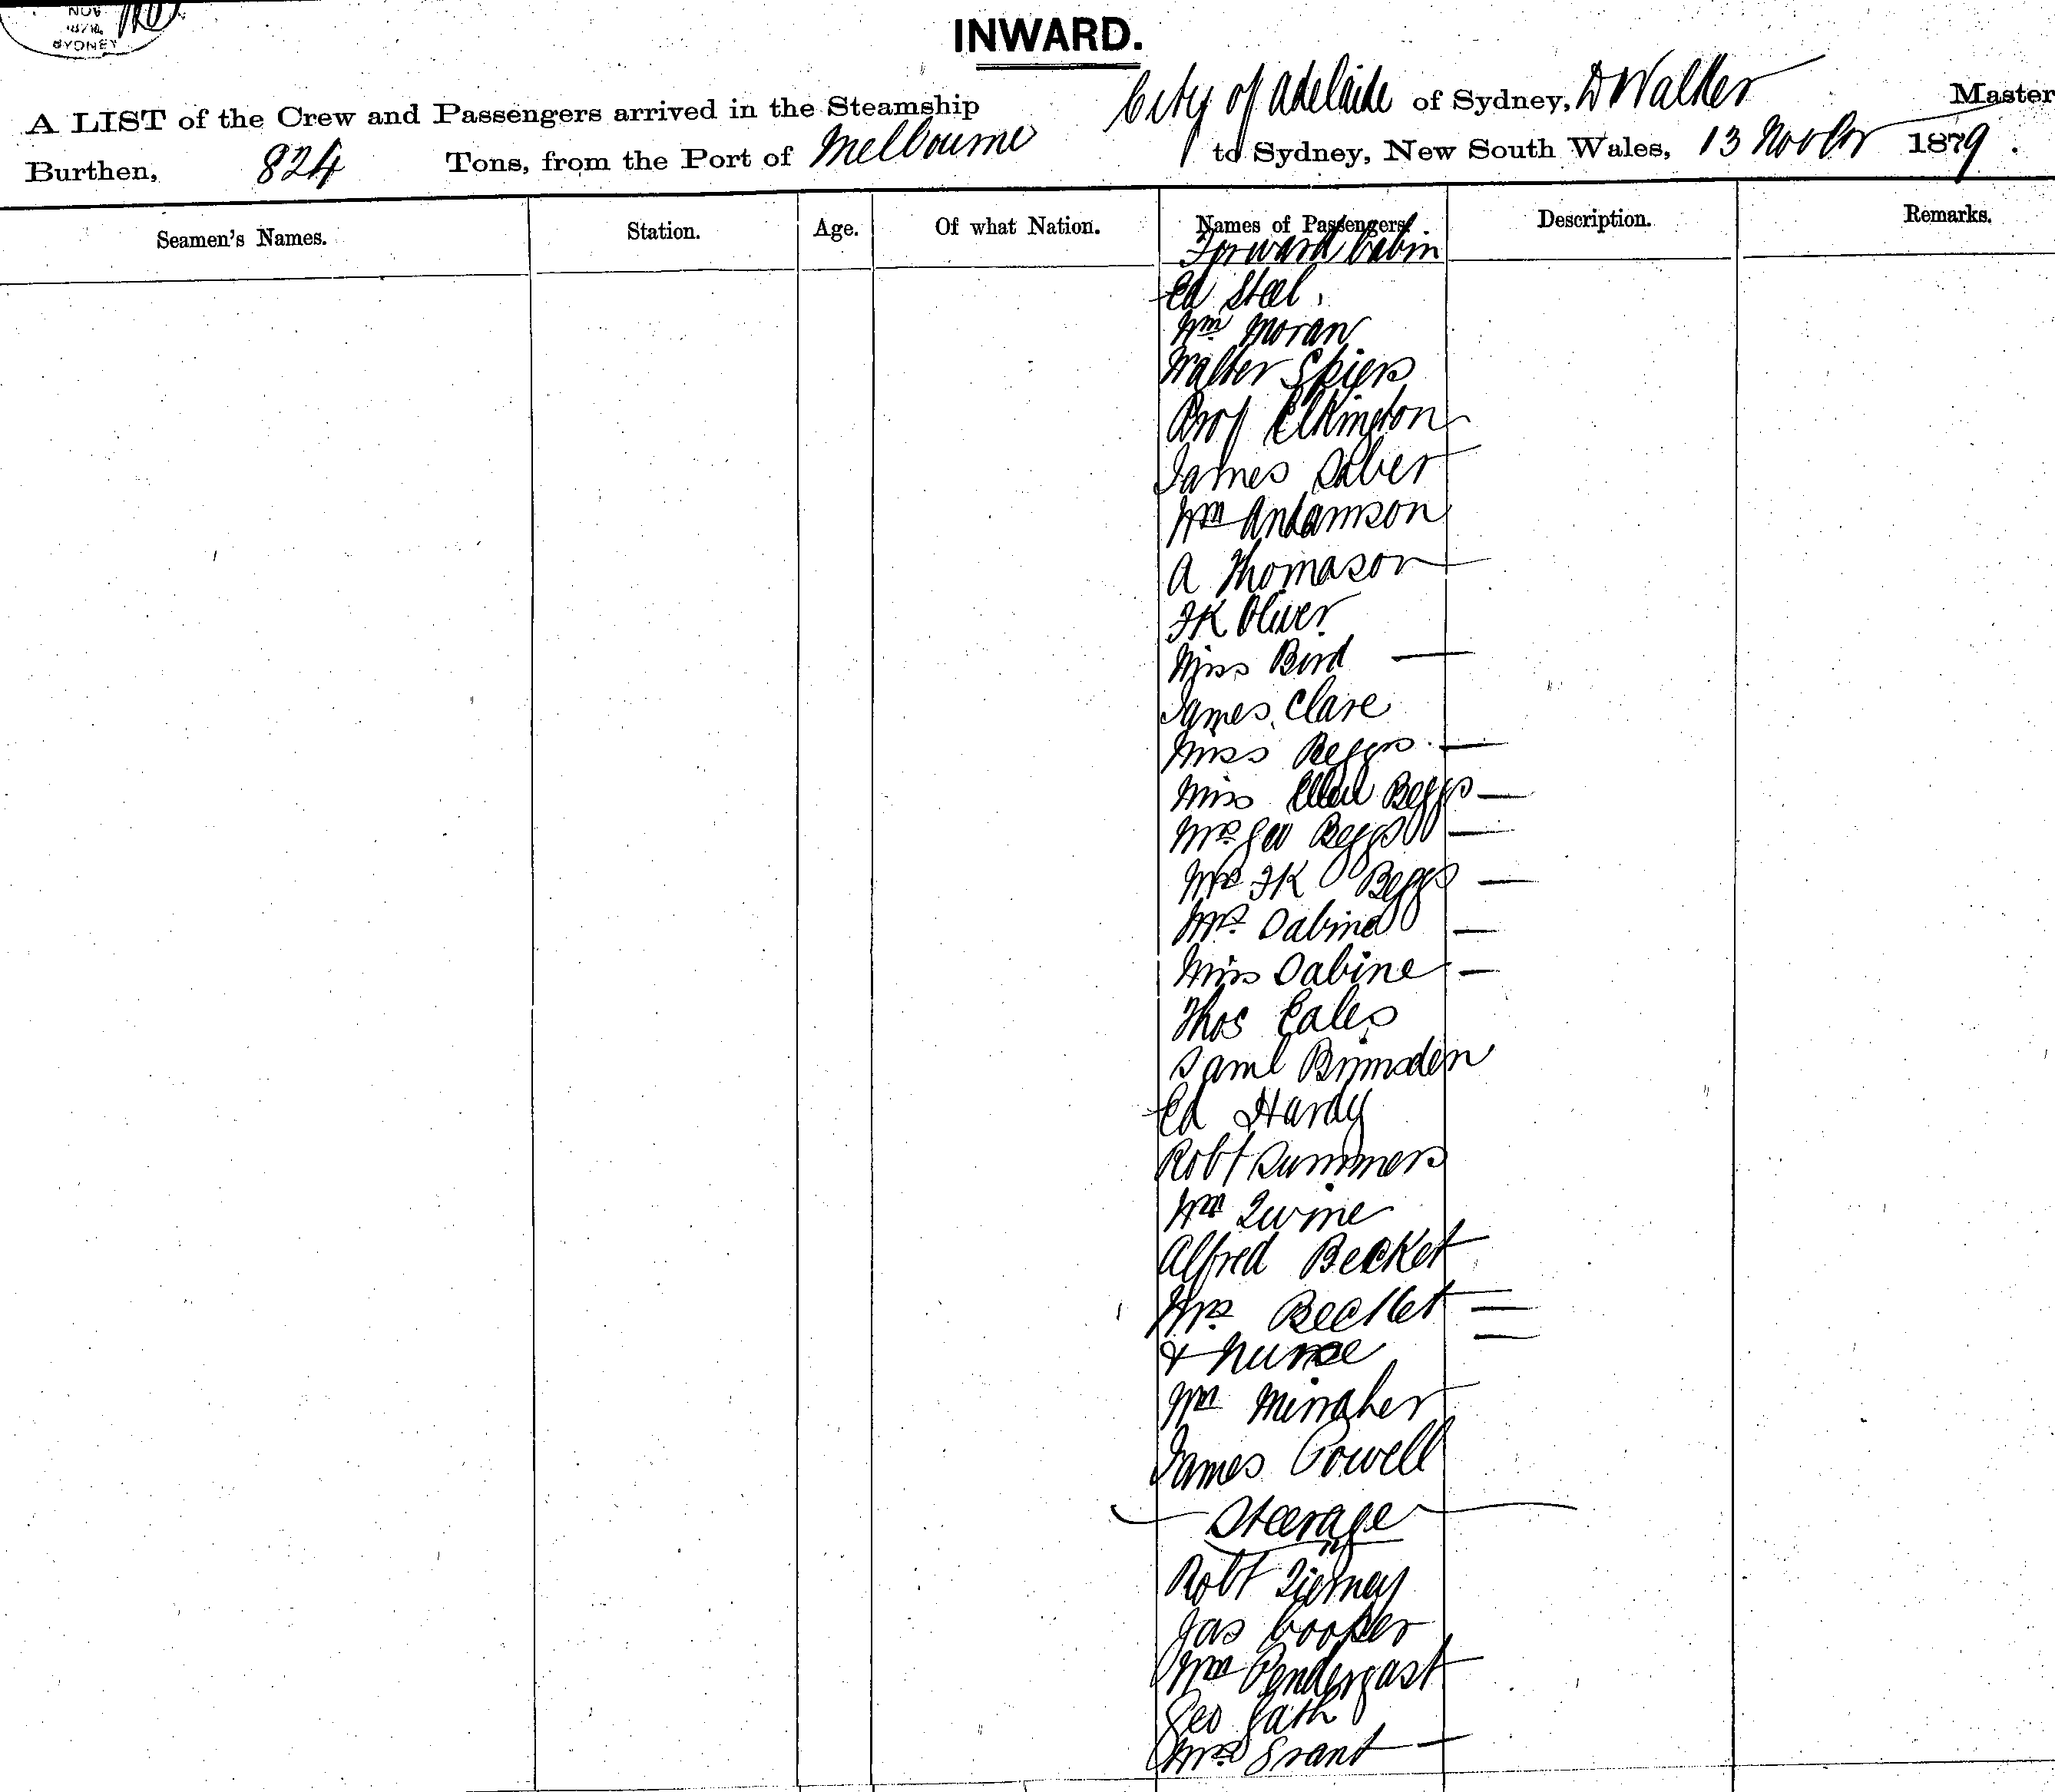 NOV
SYDNEY
INWARD.
A LIST of the Crew and Passengers arrived in the Steamship City of Adelaide of Sydney, D Walker Master
Burthen, 824 Tons, from the Port of Melbourne to Sydney, New South Wales, 13 Novbr 1879.
Seamen's Names. Station. Age. Of what Nation. Names of Passengers. Description. Remarks.
Forward Cabin
Ed Steel
Wm Moran
Walter Spiers
Prof Elkington
James Silver
Wm Andamson
A Thomason
FK Oliver
Miss Bird —
James Clare
Miss Beggs —
Miss Ellen Beggs —
Mrs Geo Beggs —
Mrs FK Beggs —
Mrs Sabine —
Miss Sabine —
Thos Eales
Saml Brimsden
Ed Hardy
Robt Summers
Wm
Alfred Becket
Mrs Becket —
& nurse —
Wm
James Powell
Steerage
Robt Tierney
Jas Cooper
Wm Pendergast
Geo
Mrs Grant —